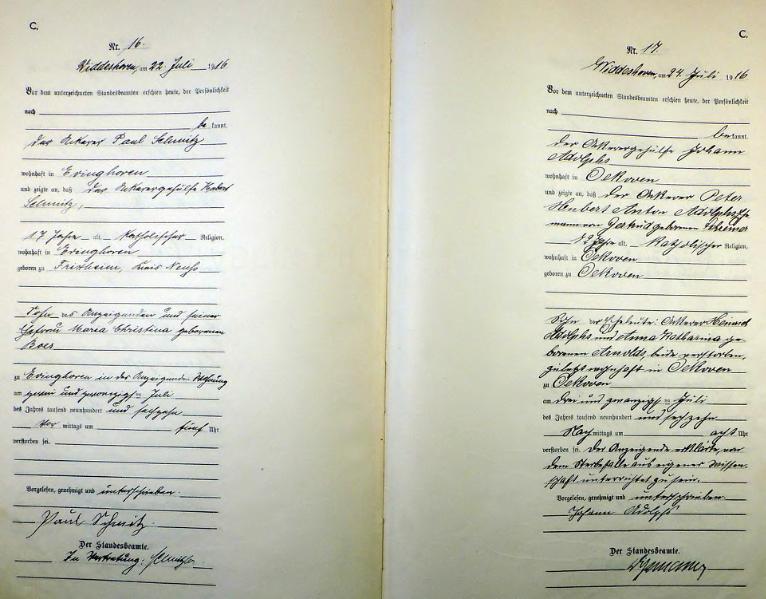 C.
Nr. 16.
Widdeshoven, am 22. Juli 1916
Vor dem unterzeichneten Standesbeamten erschien heute, der Persönlichkeit
nach
be kannt,
der Ackerer Paul Schmitz
wohnhaft in Evinghoven
und zeigte an, daß der Ackerergehülfe Hubert
Schmitz,
17 Jahre alt, katholischer Religion,
wohnhaft in Evinghoven
geboren zu Frixheim, Kreis Neuß
Sohn des Anzeigenden und seiner
Ehefrau Maria Christina geborenen
zu Evinghoven in des Anzeigenden Wohnung
am zwei und zwanzigsten Juli
des Jahres tausend neunhundert und sechzehn
Vor mittags um fünf Uhr
verstorben sei.
Vorgelesen, genehmigt und unterschrieben.
Paul Schmitz.
Der Standesbeamte.
In Vertretung:
C.
Nr. 17.
Widdeshoven, am 24. Juli 1916
Vor dem unterzeichneten Standesbeamten erschien heute, der Persönlichkeit
nach
bekannt,
der Ackerergehülfe Johann
Adolphs
wohnhaft in Oekoven
und zeigte an, daß der Ackerer Peter
Hubert Anton Adolphs, Ehe-
mann von Gertrud geborenen
Jahre alt, katholischer Religion,
wohnhaft in Oekoven
geboren zu Oekoven
Sohn der Eheleute: Ackerer Heinrich
Adolphs und Anna Katharina ge-
borenen Arnolds, beide verstorben,
zuletzt wohnhaft in Oekoven
zu Oekoven
am drei und zwanzigsten Juli
des Jahres tausend neunhundert und sechzehn
Nach mittags um acht Uhr
verstorben sei. Der Anzeigende erklärte, von
dem Sterbefalle aus eigener Wissen-
schaft unterrichtet zu sein.
Vorgelesen, genehmigt und unterschrieben
Johann Adolphs
Der Standesbeamte.